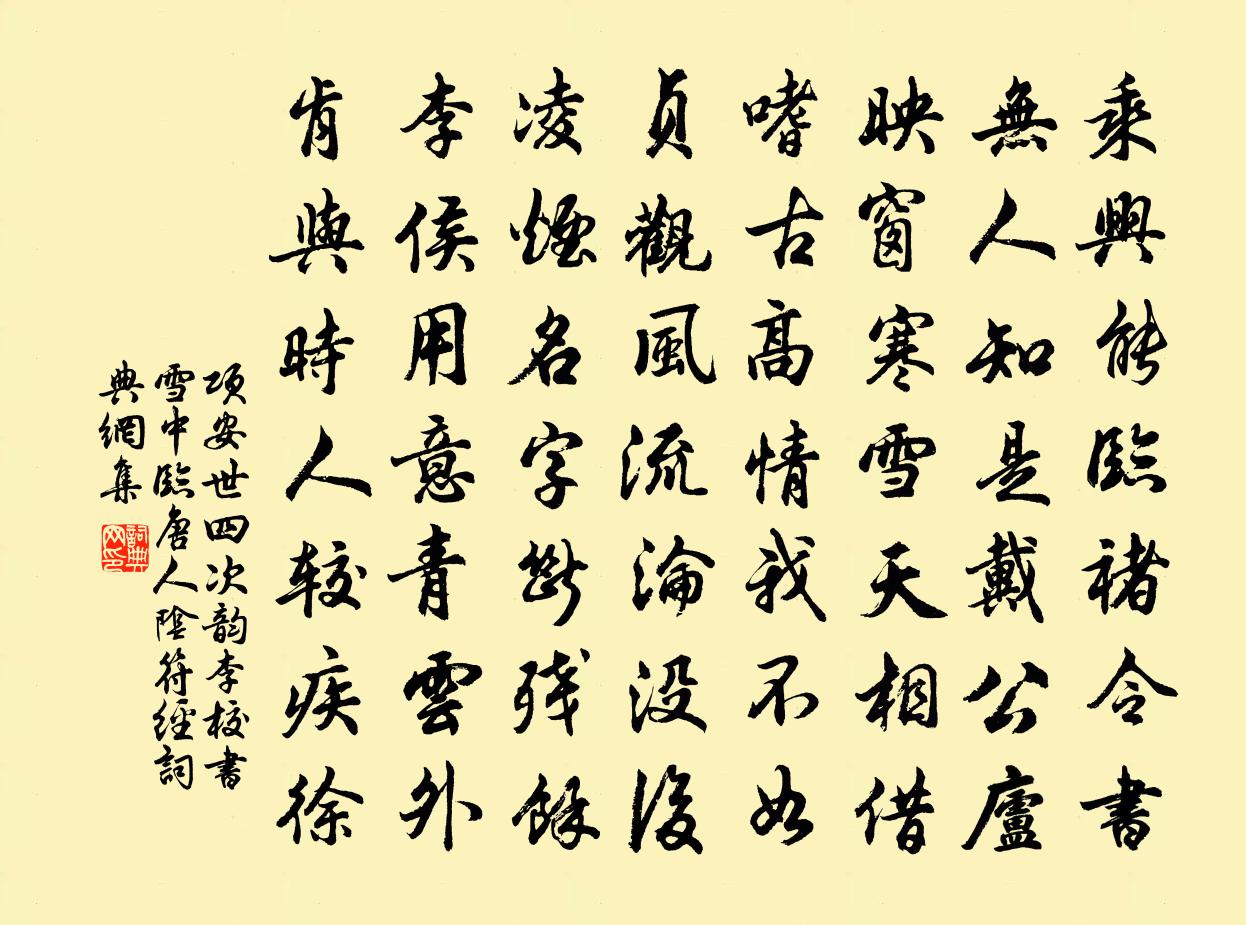 乘興能臨褚令書
無人知是戴公廬
映窗寒雪天相借
嗜古高情我不如
貞觀風流淪没後
凌煙名字斷殘餘
李侯用意青雲外
肯與時人較疾徐
項安世四次韵李校書
雪中臨唐人陰符經詞
典網集
詞典网印